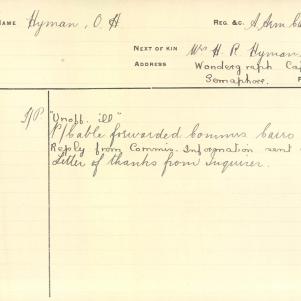 NAME Hyman, O H
REG &C. A. Arm Ca
NEXT OF KIN Mrs H. R Hyman,
ADDRESS Wondergraph Ca
Semaphore.
I/P "Unoff. ill"
P/Cable forwarded Commrs Cairo
Reply from Commis. Information sent
Letter of thanks from Inquirer.